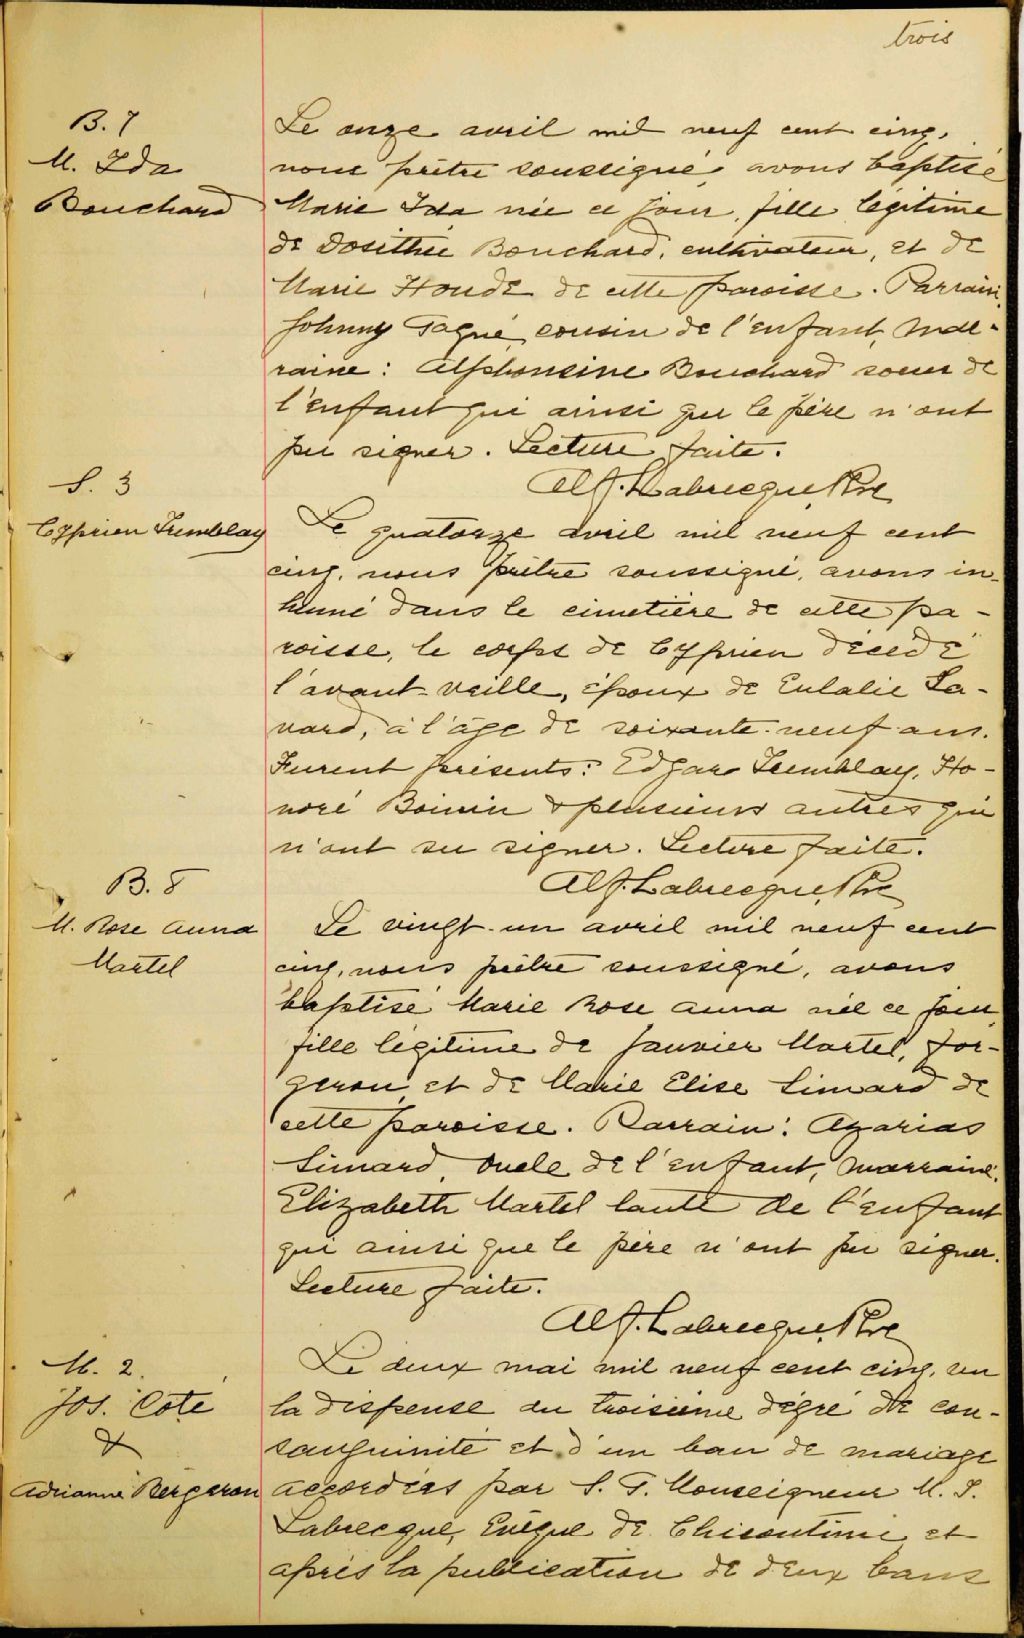 trois
B. 7
M. Ida
Bouchard
Le onze avril mil neuf cent cinq,
nous prêtre soussigné, avons baptisé
Marie Ida née ce jour, fille légitime
de Dosithée Bouchard, cultivateur, et de
Marie Houde de cette paroisse. Parrain,
Johnny Gagné, cousin de l'enfant, mar-
raine : Alphonsine Bouchard soeur de
l'enfant qui ainsi que le père n'ont
pu signer. Lecture faite.
Alf. Labrecque, Ptre
S. 3
Cyprien Tremblay
Le quatorze avril mil neuf cent
cinq, nous prêtre soussigné, avons in-
humé dans le cimetière de cette pa-
roisse, le corps de Cyprien décédé
l'avant-veille, époux de Eulalie Sa-
vard, à l'âge de soixante-neuf ans.
Furent présents : Edgar Tremblay, Ho-
noré Boivin & plusieurs autres qui
n'ont su signer. Lecture faite.
Alf. Labrecque, Ptre
B. 8
M. Rose Anna
Martel
Le vingt-un avril mil neuf cent
cinq, nous prêtre soussigné, avons
baptisé Marie Rose Anna née ce jour,
fille légitime de Janvier Martel, for-
geron, et de Marie Elise Simard de
cette paroisse. Parrain : Azarias
Simard, oncle de l'enfant, marraine,
Elizabeth Martel tante de l'enfant
qui ainsi que le père n'ont pu signer.
Lecture faite.
Alf. Labrecque, Ptre
M. 2.
Jos. Coté
&
Adrianne Bergeron
Le deux mai mil neuf cent cinq, vu
la dispense du troisième dégré de con-
sanguinité et d'un ban de mariage
accordées par S. G. Monseigneur M. T.
Labrecque, Evêque de Chicoutimi, et
après la publication de deux bans